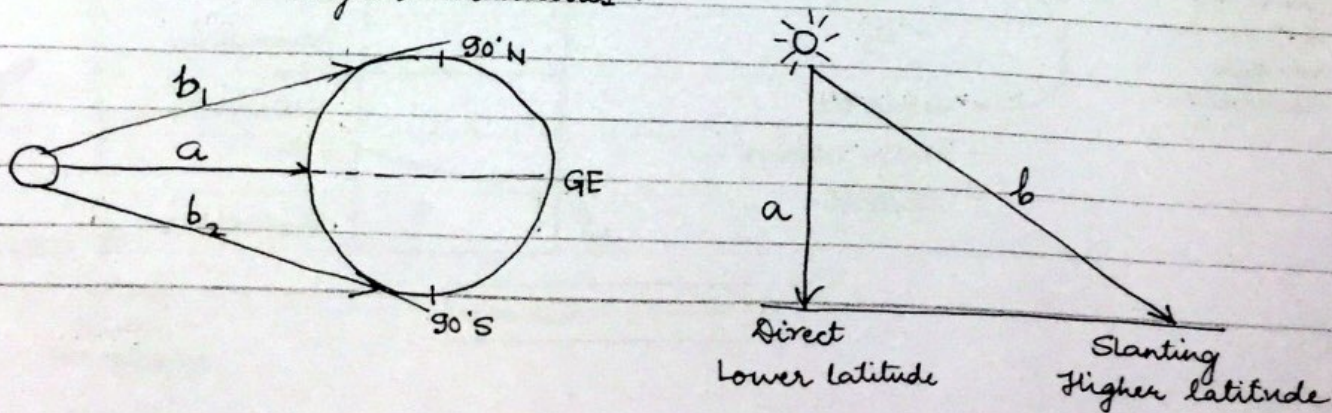 90°N
b₁
a
GE
b₂
90°S
a
b
Direct
Lower latitude
Slanting
Higher latitude